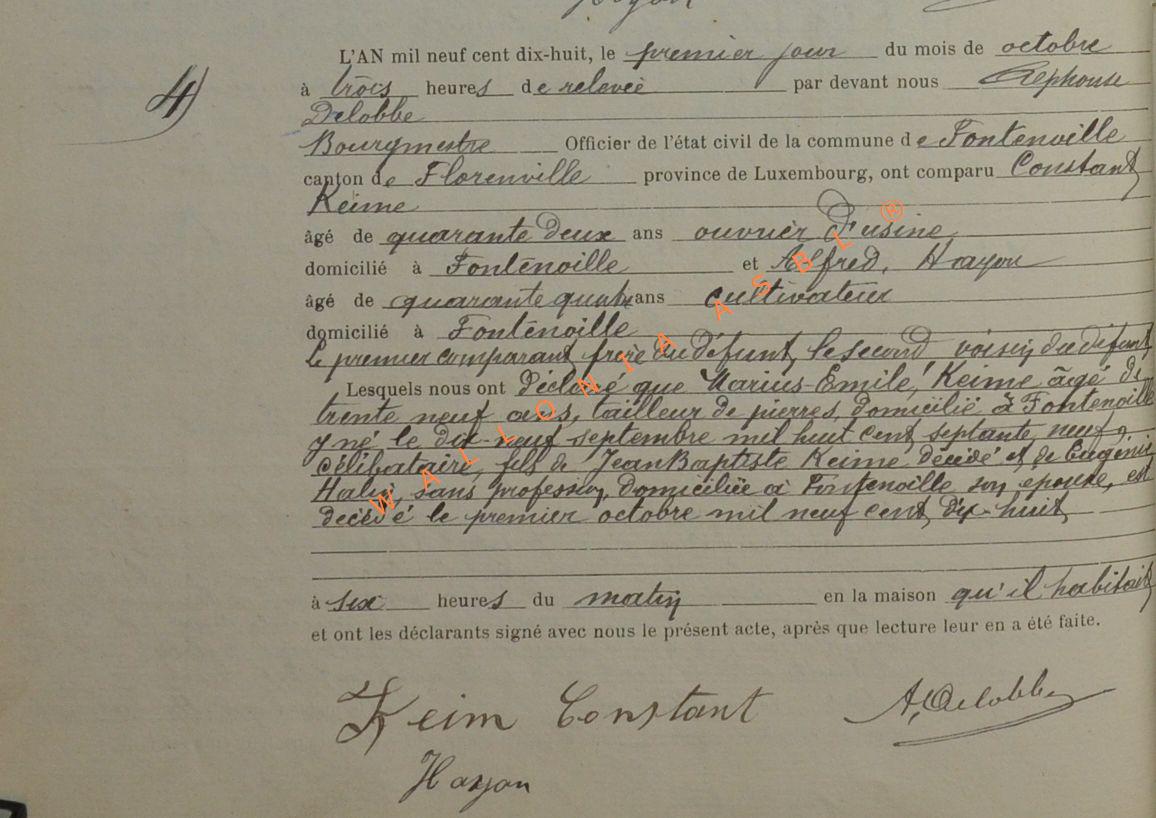 4)
L'AN mil neuf cent dix-huit, le premier jour du mois de octobre
à trois heures de relevée par devant nous Alphonse
Delobbe
Bourgmestre Officier de l'état civil de la commune de Fontenoille
canton de Florenville province de Luxembourg, ont comparu Constant
Keime
âgé de quarante deux ans ouvrier d'usine
domicilié à Fontenoille et Alfred, Hayon
âgé de quarante quatre ans cultivateur
domicilié à Fontenoille
Le premier comparant frère du défunt, le second voisin du défunt
Lesquels nous ont déclaré que Marius-Emile, Keime âgé de
trente neuf ans, tailleur de pierres, domicilié à Fontenoille
y né le dix-neuf septembre mil huit cent septante neuf,
célibataire, fils de Jean Baptiste Keime décédé et de Eugénie
sans profession, domiciliée à Fontenoille son épouse, est
décédé le premier octobre mil neuf cent dix-huit
à six heures du matin en la maison qu'il habitait
et ont les déclarants signé avec nous le présent acte, après que lecture leur en a été faite.
Keim Constant A. Delobbe
Hayon
WALLONIA ASBL ®